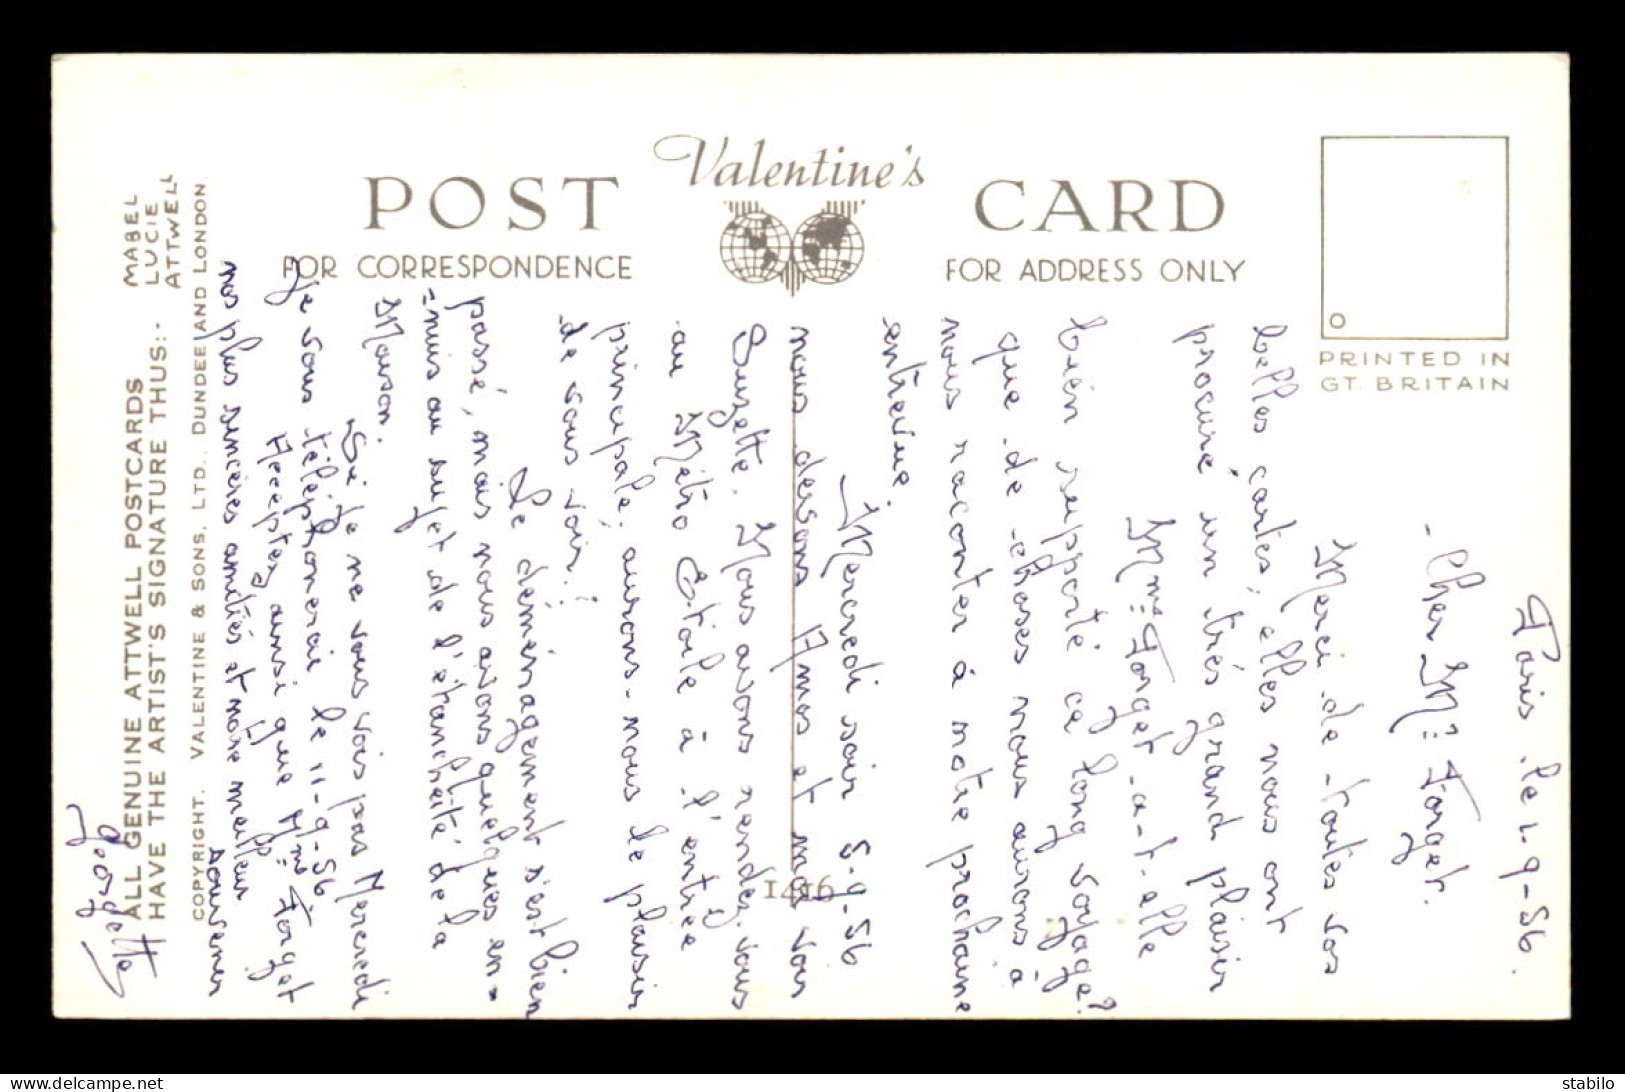 POST
Valentine's
CARD
FOR CORRESPONDENCE
FOR ADDRESS ONLY
PRINTED IN
GT. BRITAIN
1416
ALL GENUINE ATTWELL POSTCARDS
HAVE THE ARTIST'S SIGNATURE THUS:-
MABEL
LUCIE
ATTWELL
COPYRIGHT. VALENTINE & SONS, LTD., DUNDEE AND LONDON.
Paris le 1-9-56.
-Cher Mr Forget.
Merci de toutes vos
belles cartes, elles nous ont
procuré un très grand plaisir
Mme Forget a-t-elle
bien supporté ce long voyage?
que de choses vous aurons à
nous raconter à notre prochaine
entrevue.
Mercredi soir 5-9-56
nous derons Amos et moi voir
Suzette. Nous avons rendez-vous
au Métro Etoile à l'entrée
principale; aurons-nous le plaisir
de vous voir?
Le déménagement s'est bien
passé, mais nous avons quelques en-
-nuis au sujet de l'étanchéité de la
Maison.
Si je ne vous vois pas Mercredi
je vous téléphonerai le 11-9-56
Acceptez ainsi que Mme Forget
nos plus sincères amitiés et notre meilleur
souvenir
Georgette
delcampe.net
stabilo